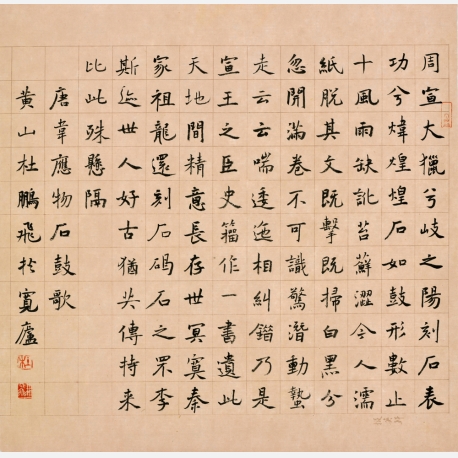 周宣大獵兮岐之陽刻石表
功兮煒煌煌石如鼓形數止
十風雨缺訛苔蘚澀今人濡
紙脫其文既擊既掃白黑分
忽開滿卷不可識驚潛動蟄
走云云喘逶迤相糾錯乃是
宣王之臣史籀作一書遺此
天地間精意長存世冥寞秦
家祖龍還刻石碣石之罘李
斯迹世人好古猶共傳持來
比此殊懸隔
唐韋應物石鼓歌
黃山杜鵬飛扵寬廬